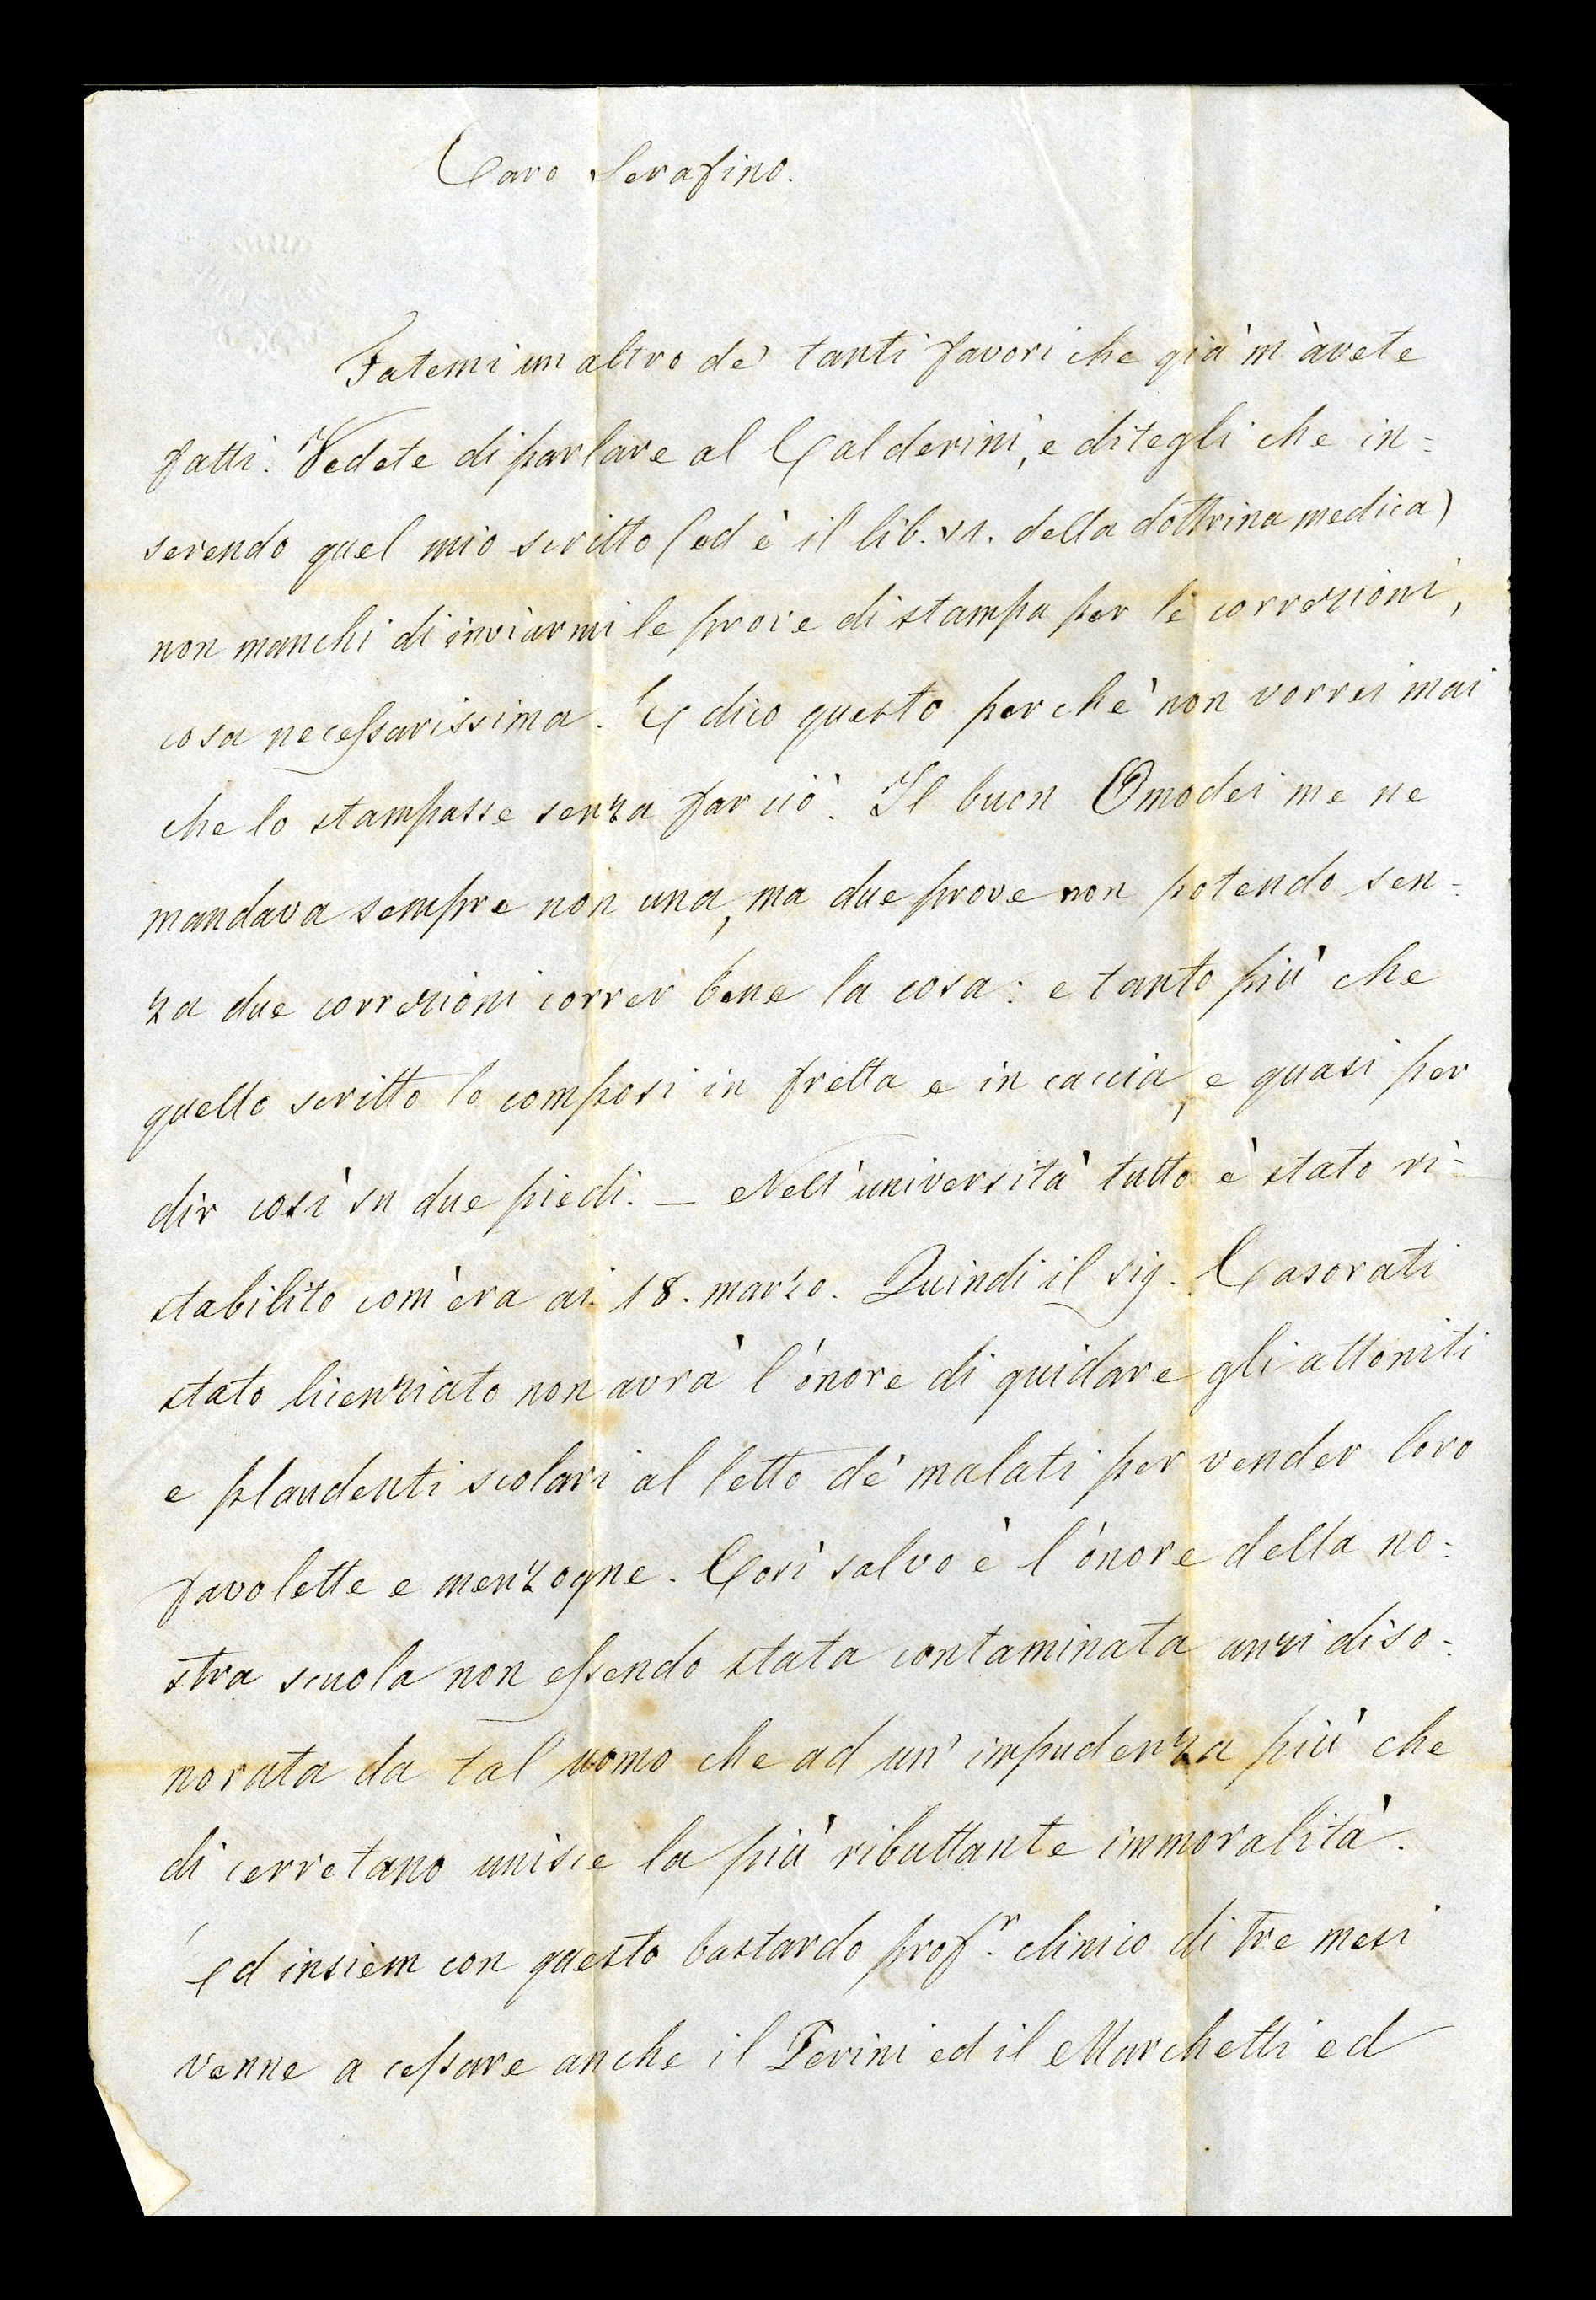 Caro Serafino.
Fatemi un altro de' tanti favori che già m'avete
fatti. Vedete di parlare al Calderini, e ditegli che in=
serendo quel mio scritto (ed è il lib. VI. della dottrina medica)
non manchi di inviarmi le prove di stampa per le correzioni,
cosa necessarissima. E dico questo perchè non vorrei mai
che lo stampasse senza far ciò. Il buon Omodei me ne
mandava sempre non una, ma due prove non potendo sen=
za due correzioni correr bene la cosa: e tanto più che
quello scritto lo composi in fretta e in caccia, e quasi per
dir così su due piedi. — Nell'università tutto è stato ri=
stabilito com'era ai 18. marzo. Quindi il sig. Casorati
stato licenziato non avrà l'onore di guidare gli attoniti
e plaudenti scolari al letto de' malati per vender loro
favolette e menzogne. Così salvo è l'onore della no=
stra scuola non essendo stata contaminata anzi diso=
norata da tal uomo che ad un'impudenza più che
di cerretano unisce la più ributtante immoralità.
Ed insiem con questo bastardo prof.r clinico di tre mesi
venne a cessare anche il Perini ed il Marchetti ed